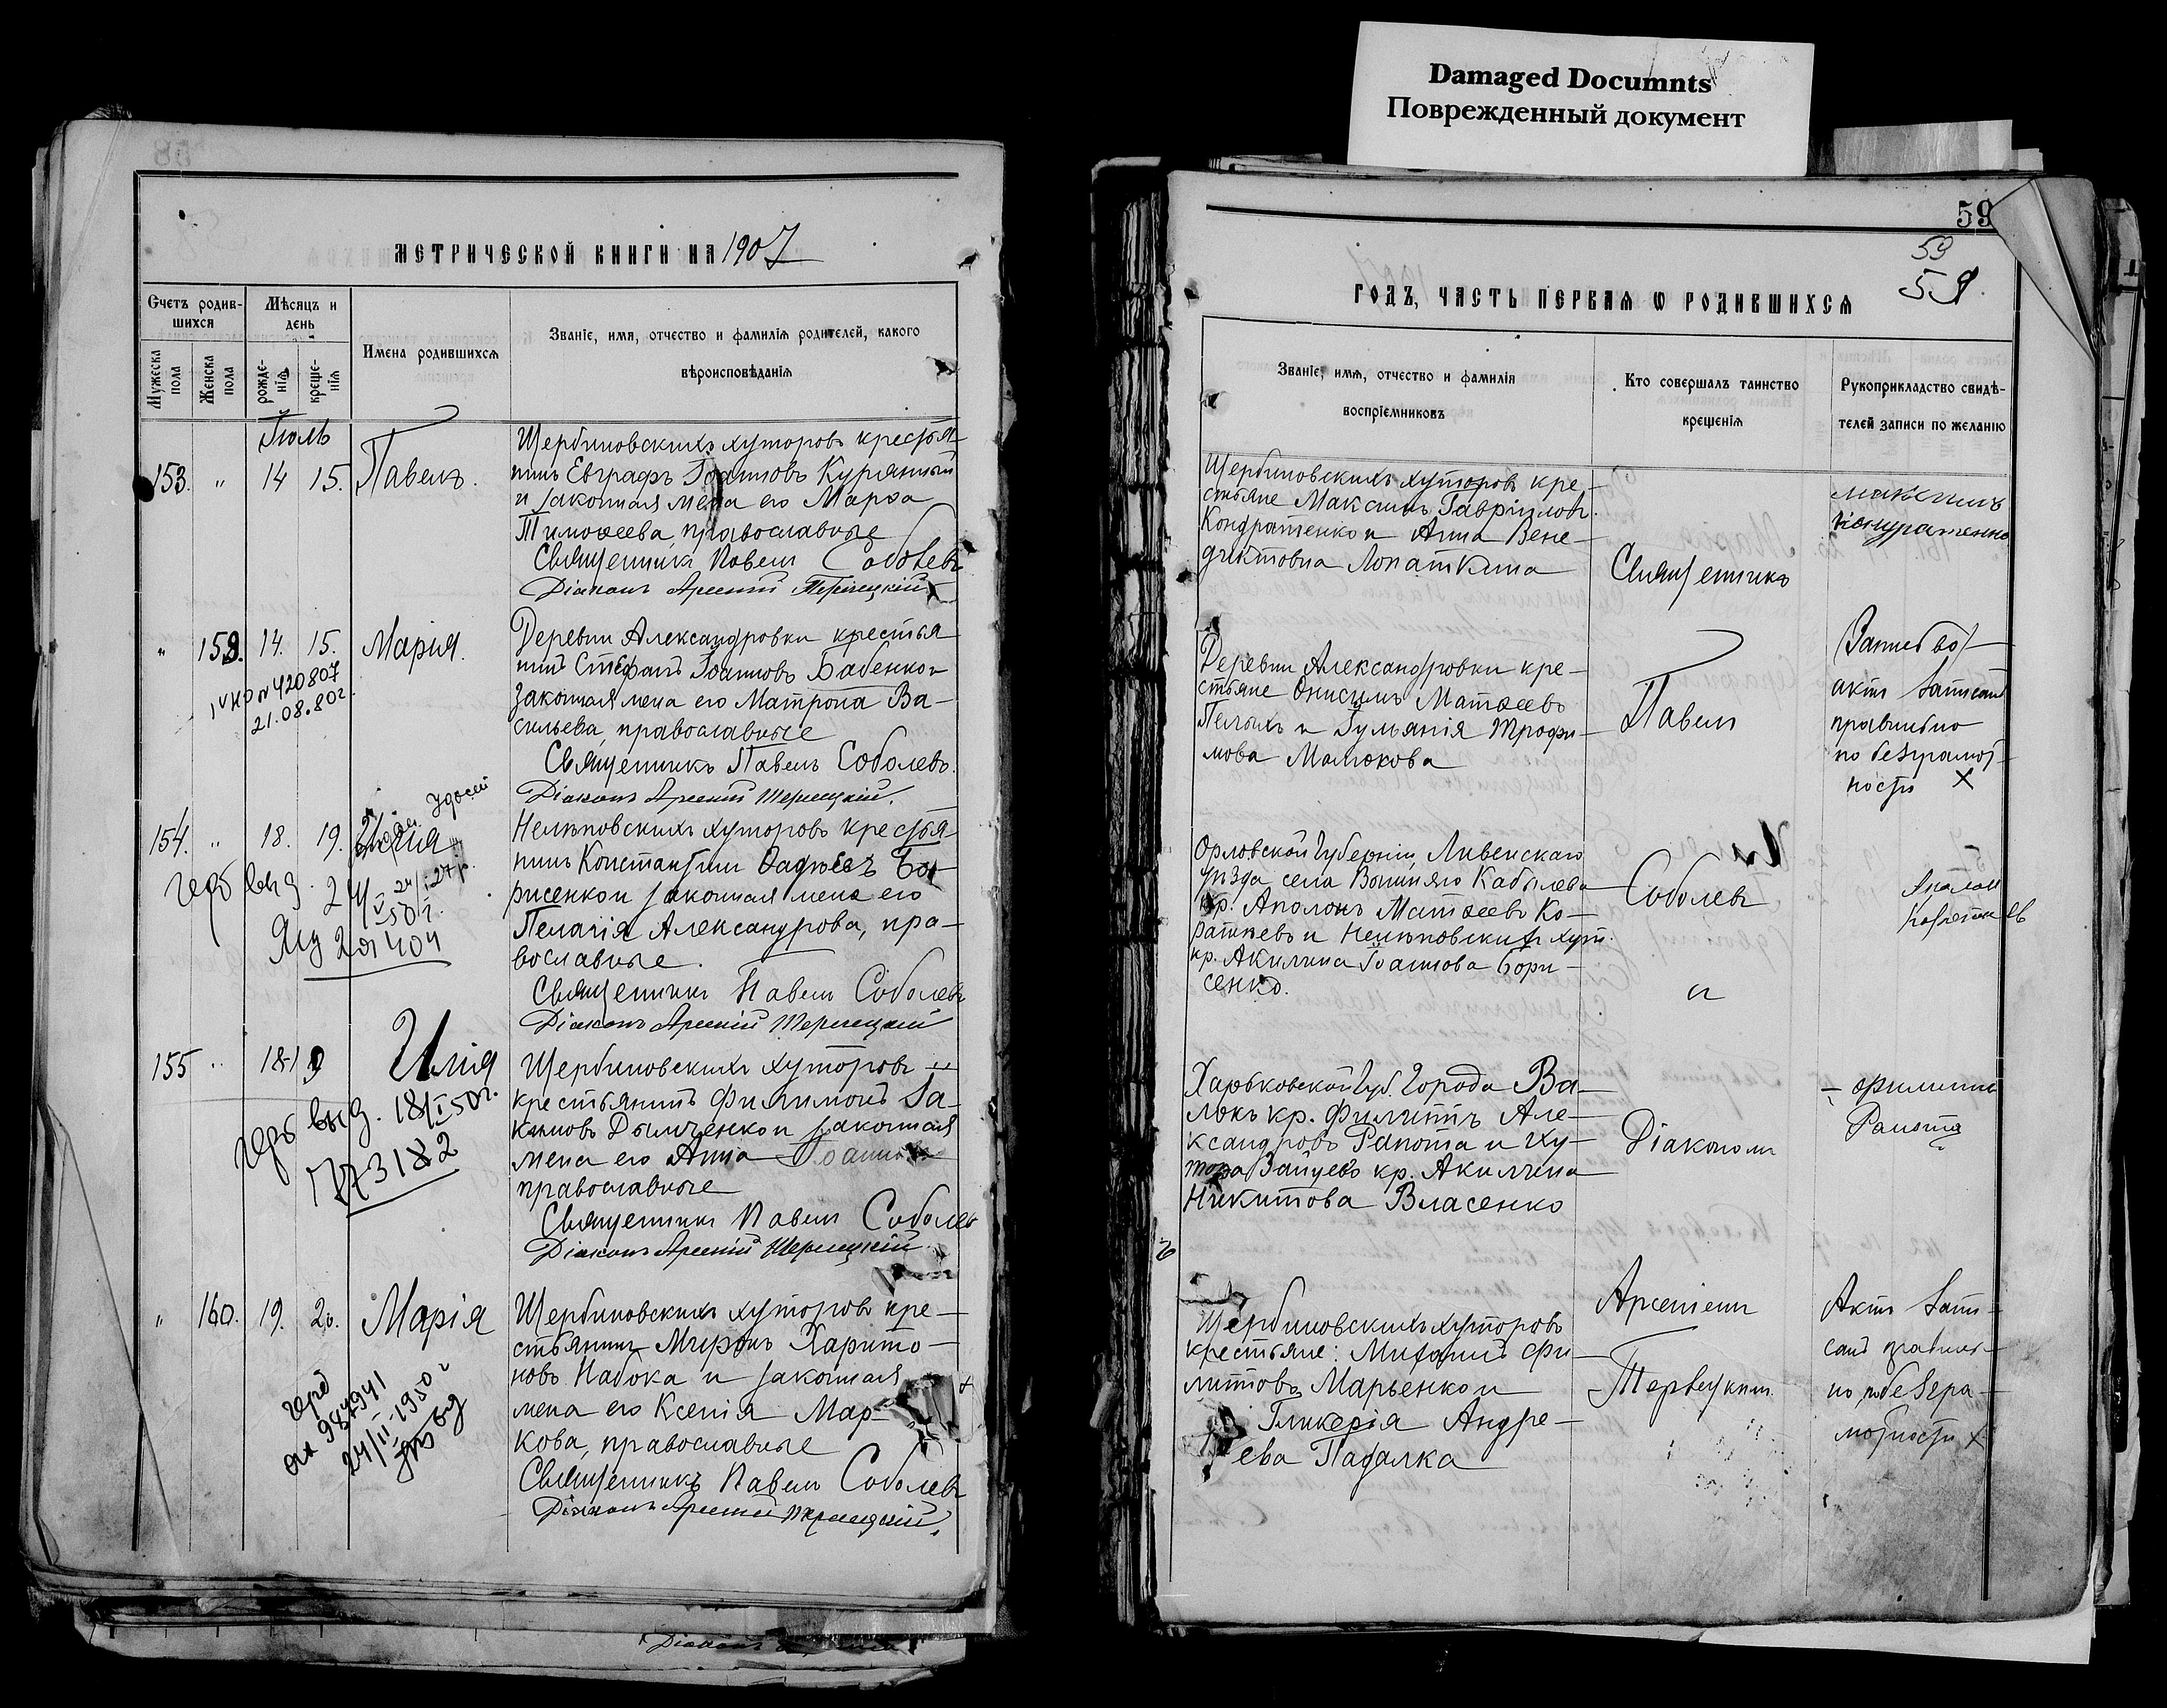 Damaged Documnts
Поврежденный документ
МЕТРИЧЕСКОЙ КНИГИ НА 1907
Счетъ родив-
шихся
Мѣсяцъ и
день
Имена родившихся
Званіе, имя, отчество и фамилія родителей, какого
вѣроисповѣданія
Мужеска
пола
Женска
пола
рожде-
нія
креще-
нія
Іюль
153. " 14 15. Павелъ.
Щербиновскихъ хуторовъ крестья-
нинъ Евграфъ Іоанновъ Курянный
и законная жена его Марѳа
Тимоѳеева, православные
Священникъ Павелъ Соболевъ
Діаконъ Арсеній Терлецкій
" 159. 14. 15. Марія.
IVНО № 420807
21.08.80г.
Деревни Александровки крестья-
нинъ Стефанъ Іоанновъ Бабенко и
законная жена его Матрона Ва-
сильева, православные
Священникъ Павелъ Соболевъ.
Діаконъ Арсеній Терлецкій.
154. " 18. 19. Илія
24/V 50г.
ЯЦ 201404
Нелѣповскихъ хуторовъ крестья-
нинъ Константинъ Ѳадѣевъ Бо-
рисенко и законная жена его
Пелагія Александрова, пра-
вославные.
Священникъ Павелъ Соболевъ
Діаконъ Арсеній Терлецкій
155 " 18 19 Илія
выд. 18/I 50г.
773182
Щербиновскихъ хуторовъ
крестьянинъ Филимонъ За-
Дымченко и законная
жена его Анна Іоаннова
православные
Священникъ Павелъ Соболевъ
Діаконъ Арсеній Терлецкій.
" 160. 19. 20. Марія
987941
24/II-1950г
Щербиновскихъ хуторовъ кре-
стьянинъ Миронъ Харито-
новъ Набока и законная
жена его Ксенія Мар-
кова, православные
Священникъ Павелъ Соболевъ
Діаконъ Арсеній Терлецкій.
59
59
59.
ГОДЪ, ЧАСТЬ ПЕРВАЯ Ѡ РОДИВШИХСЯ
Званіе, имя, отчество и фамилія
воспріемниковъ
Кто совершалъ таинство
крещенія
Рукоприкладство свидѣ-
телей записи по желанію
Щербиновскихъ хуторовъ кре-
стьяне Максимъ Гавріиловъ
Кондратенко и Анна Вене-
диктовна Лопаткина
Священникъ
Максимъ
Кондратенко
Деревни Александровки кре-
стьяне Онисимъ Матѳеевъ
Пелыхъ и Іуліанія Трофи-
мова Малюкова
Павелъ
актъ записанъ
правильно
по безграмот-
ности X
Орловской губерніи, Ливенскаго
уѣзда села Вышняго Кабылева
кр. Аполонъ Матѳеевъ Ко-
и Нелѣповскихъ хут.
кр. Акилина Іоаннова Бори-
сенко.
Соболевъ
и
Аполонъ
Харьковской губ. города Ва-
локъ кр. Филиппъ Але-
ксандровъ Рапота и ху-
тора Зайцево кр. Акилина
Никитова Власенко
Діакономъ
Филиппъ
Рапота
Щербиновскихъ хуторовъ
крестьяне: Михаилъ Фи-
липповъ Марьенко и
Гликерія Андре-
ева Падалка
Арсеніемъ
Терлецкимъ
Актъ запи-
санъ правиль-
но, по безгра-
мотности X